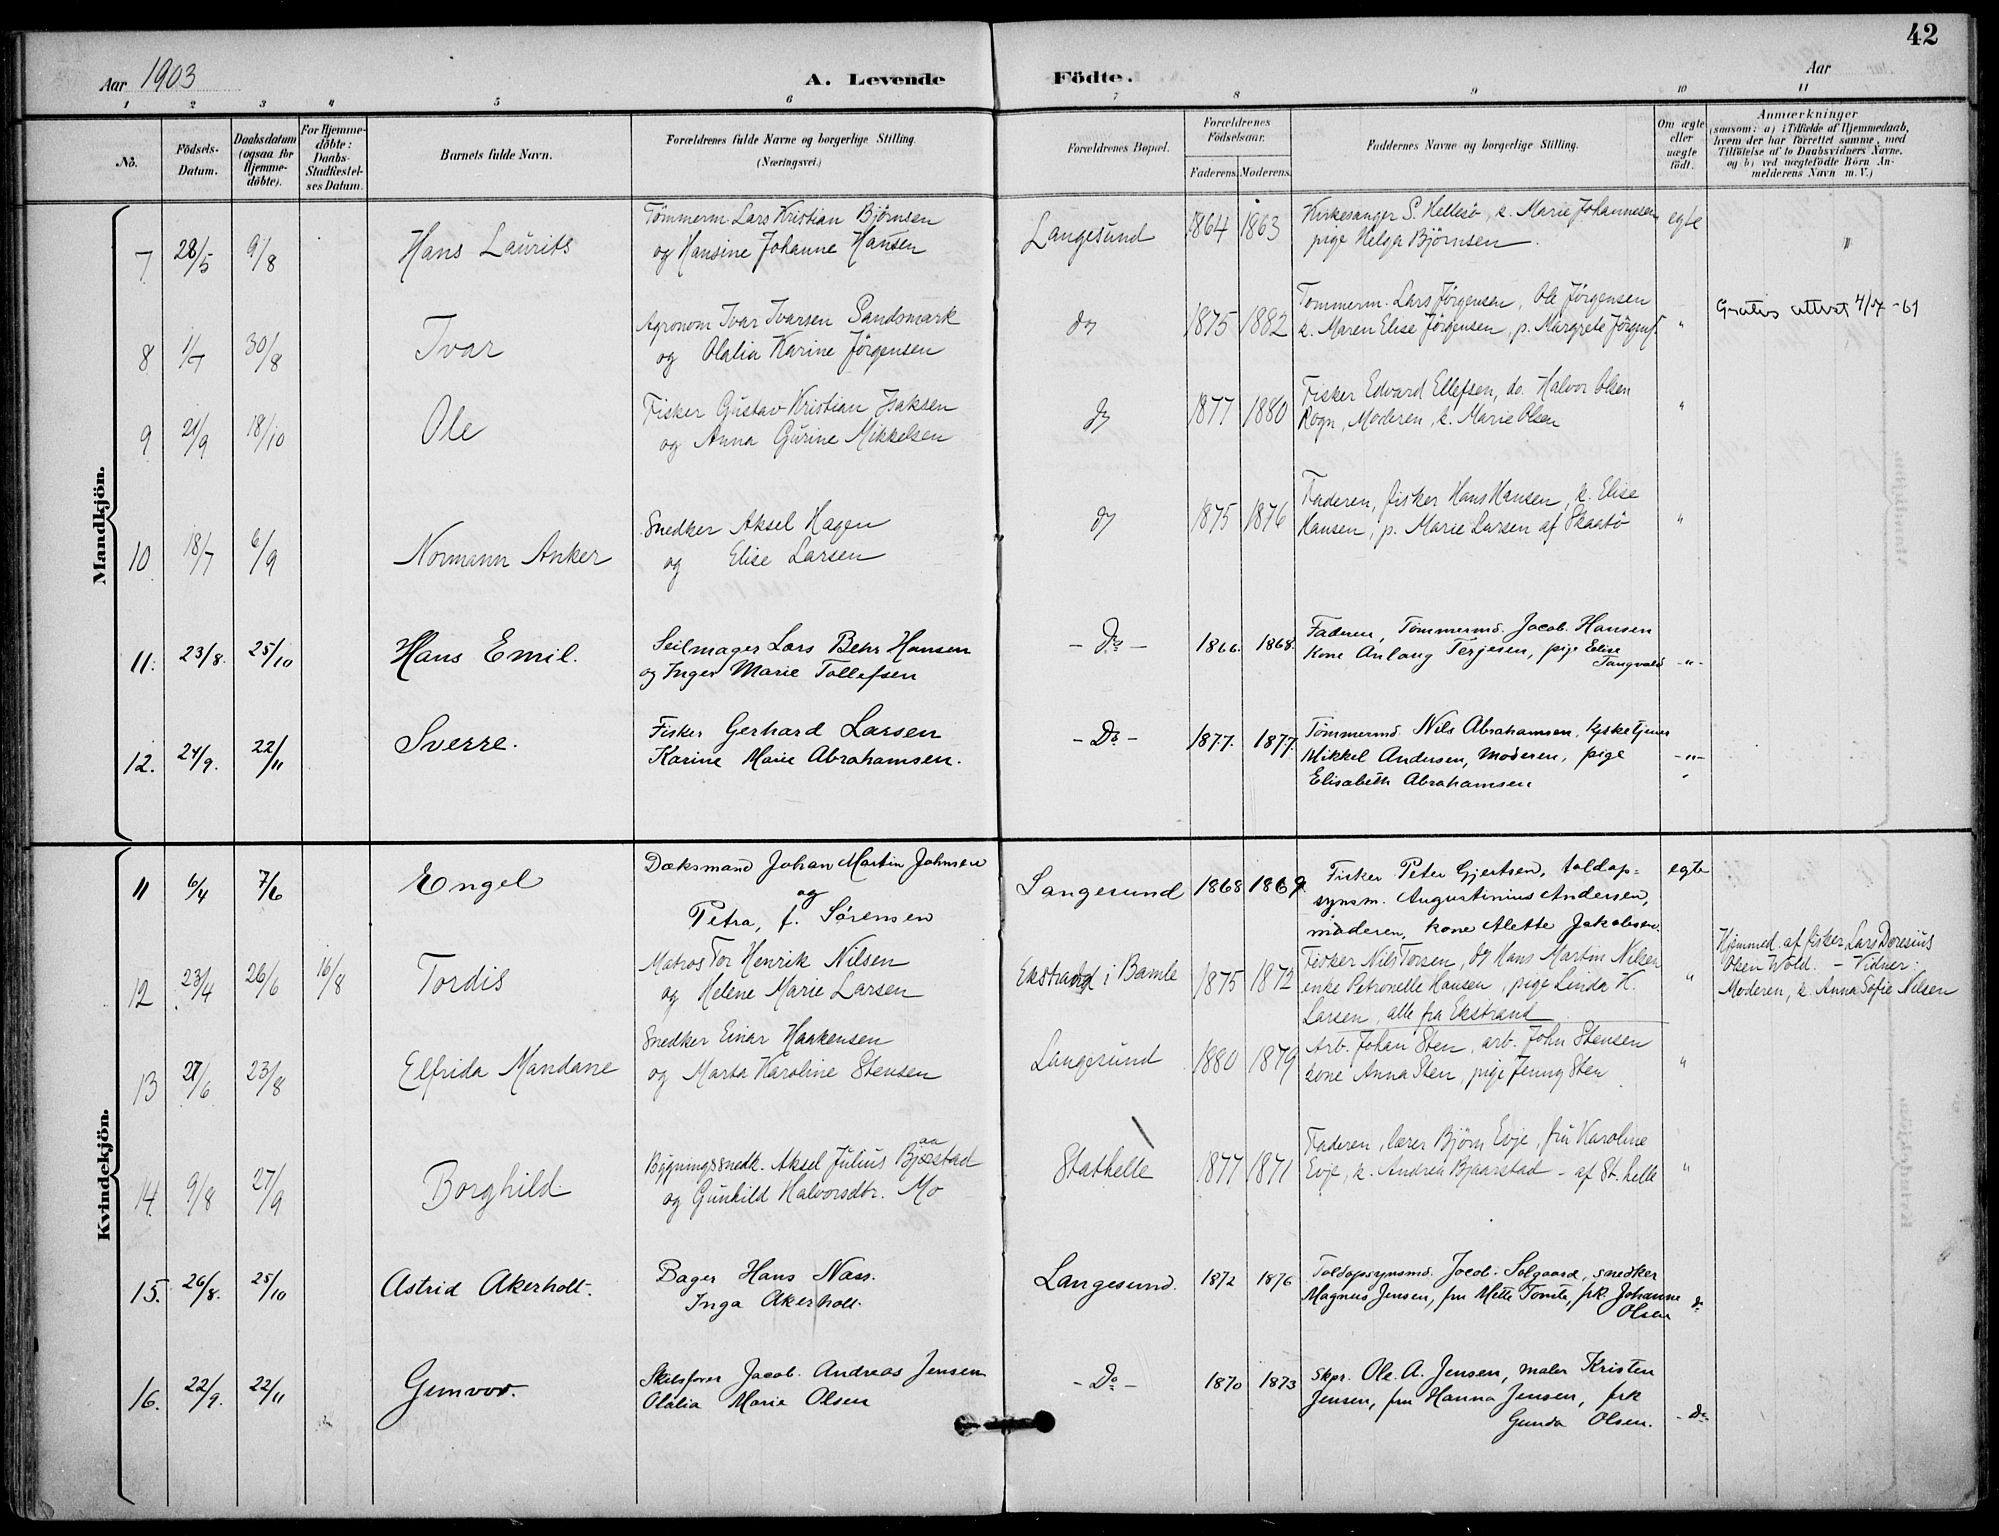 42
Aar 1903 A. Levende Födte. Aar
1 2 3 4 5 6 7 8 9 10 11
No.
Födsels-
Datum.
Daabsdatum
(ogsaa for
Hjemme-
döbte).
For Hjemme-
döbte:
Daabs-
Stadfæstel-
ses Datum.
Barnets fulde Navn.
Forældrenes fulde Navne og borgerlige Stilling.
(Næringsvei.)
Forældrenes Bopæl.
Forældrenes
Födselsaar.
Faderens. Moderens.
Faddernes Navne og borgerlige Stilling.
Om ægte
eller
uægte
födt.
Anmærkninger
(saasom: a) i Tilfælde af Hjemmedaab,
hvem der har forrettet samme, med
Tilföielse af to Daabsvidners Navne.
og b) ved uægtefödte Börn An-
melderens Navn m. V.)
Mandkjön.
7 28/5 9/8 Hans Laurits
Tömmerm. Lars Kristian Björnsen
og Hansine Johanne Hansen
Langesund 1864 1863
Kirkesanger S. Hellesö, k. Marie Johannesen
pige Helga Björnsen.
egte "
8 1/7 30/8 Ivar
Agronom Ivar Ivarsen Sandsmark
og Olalia Karine Jörgensen
do 1875 1882
Tömmerm. Lars Jörgensen, Ole Jörgensen
k. Maren Elise Jörgensen, p. Margrete Jörgens.
"
Gratis attest 4/7-61
9 21/9 18/10 Ole
Fisker Gustav Kristian Isaksen
og Anna Gurine Mikkelsen
do 1877 1880
Fisker Edvard Ellefsen, do. Halvor Olsen
Rogn, Moderen, k. Marie Olsen
"
10 18/7 6/9 Normann Anker
Snedker Aksel Hagen
og Elise Larsen
do 1875 1876
Faderen, fisker Hans Hansen, k. Elise
Hansen, p. Marie Larsen af Skaatö
"
11. 23/8. 25/10 Hans Emil.
Seilmager Lars Behr Hansen
og Inger Marie Tollefsen
- Do - 1866. 1868.
Faderen, Tömmermd. Jacob Hansen
Kone Anlaug Terjesen, pige Elise
Tangvald
-"-
12. 24/9. 22/11 Sverre.
Fisker Gerhard Larsen
Karine Marie Abrahamsen.
- Do - 1877. 1877.
Tømmermd. Nils Abrahamsen, kirketjener
Mikkel Andersen, Moderen, pige
Elisabeth Abrahamsen
-"-
Kvindekjön.
11 6/4 7/6 Engel
Dæksmand Johan Martin Johnsen
og
Petra, f. Sørensen
Langesund 1868 1869
Fisker Peter Gjertsen, toldop=
synsm. Augustinius Andersen,
moderen, kone Alette Jakobsen.
egte
12 23/4 26/6 16/8 Tordis
Matros Tor Henrik Nilsen
og Helene Marie Larsen
Ekstrand i Bamle 1875 1872
Fisker Nils Torsen, do Hans Martin Nilsen
enke Petronelle Hansen, pige Linda K.
Larsen, alle fra Ekstrand
"
Hjemmed. af fisker Lars Doresius
Olsen Wold. - Vidner:
Moderen, k. Anna Sofie Nilsen
13 21/6 23/8 Elfrida Mandane
Snedker Einar Haakensen
og Marta Karoline Stensen
Langesund 1880 1879
Arb. Johan Sten, arb. John Stensen
kone Anna Sten, pige Jenny Sten
"
14. 9/8 27/9 Borghild.
Bygningssnedk. Aksel Julius Bjaastad
og Gunhild Halvorsdtr. Mo
Stathelle 1877 1871
Faderen, lærer Björn Evje, fru Karoline
Evje, k. Andrea Bjaarstad - af St.helle
"
15. 26/8. 25/10 Astrid Akerholt.
Bager Hans Nass.
Inga Akerholt.
Langesund. 1872 1876
Toldopsynsmd. Jacob Solgaard, snedker
Magnus Jensen, fru Mette Tomte, frk. Johanne
Olsen
do
16. 22/9. 22/11 Gunvor.
Skibsfører Jacob Andreas Jensen
Olalia Marie Olsen
- Do - 1870 1873
Skpr. Ole A. Jensen, maler Kristen
Jensen, fru Hanna Jensen, frk
Gunda Olsen.
- do